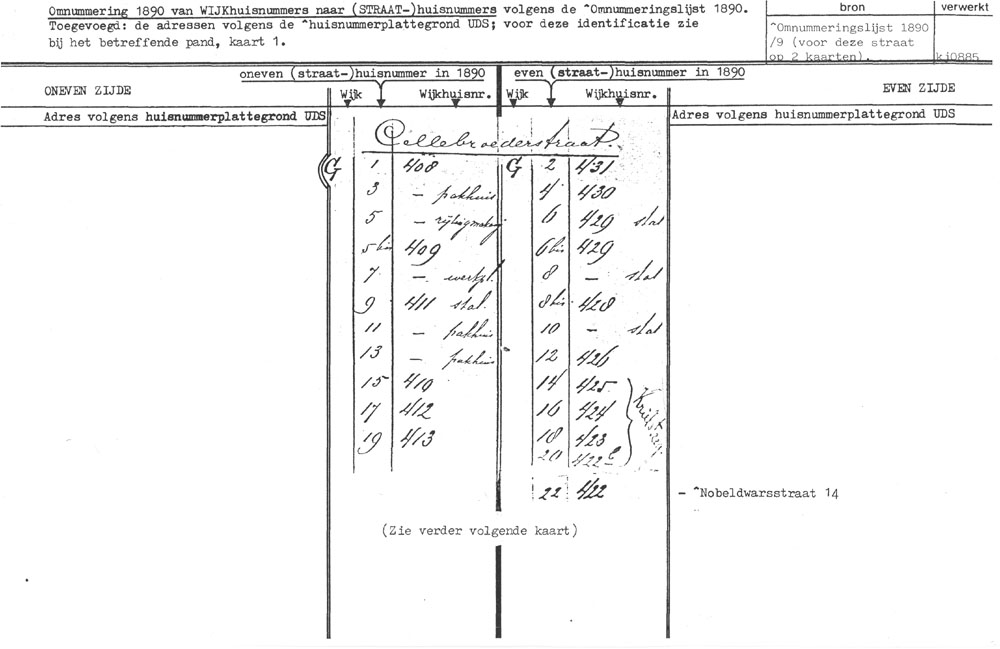 Omnummering 1890 van WIJKhuisnummers naar (STRAAT-)huisnummers volgens de ^Omnummeringslijst 1890.
Toegevoegd: de adressen volgens de ^huisnummerplattegrond UDS; voor deze identificatie zie
bij het betreffende pand, kaart 1.
bron verwerkt
^Omnummeringslijst 1890
/9 (voor deze straat
op 2 kaarten). kj0885
oneven (straat-)huisnummer in 1890 even (straat-)huisnummer in 1890
ONEVEN ZIJDE Wijk Wijkhuisnr. Wijk Wijkhuisnr. EVEN ZIJDE
Adres volgens huisnummerplattegrond UDS Adres volgens huisnummerplattegrond UDS
Cellebroederstraat.
G 1 408 G 2 431
3 – pakhuis 4 430
5 – rijtuigmakerij 6 429 stal
5 bis 409 6 bis 429
7 – werkpl. 8 – stal
9 411 stal. 8 bis 428
11 – pakhuis 10 – stal
13 – pakhuis 12 426
15 410 14 425
17 412 16 424
19 413 18 423
20 422
22 422 - ^Nobeldwarsstraat 14
(Zie verder volgende kaart)